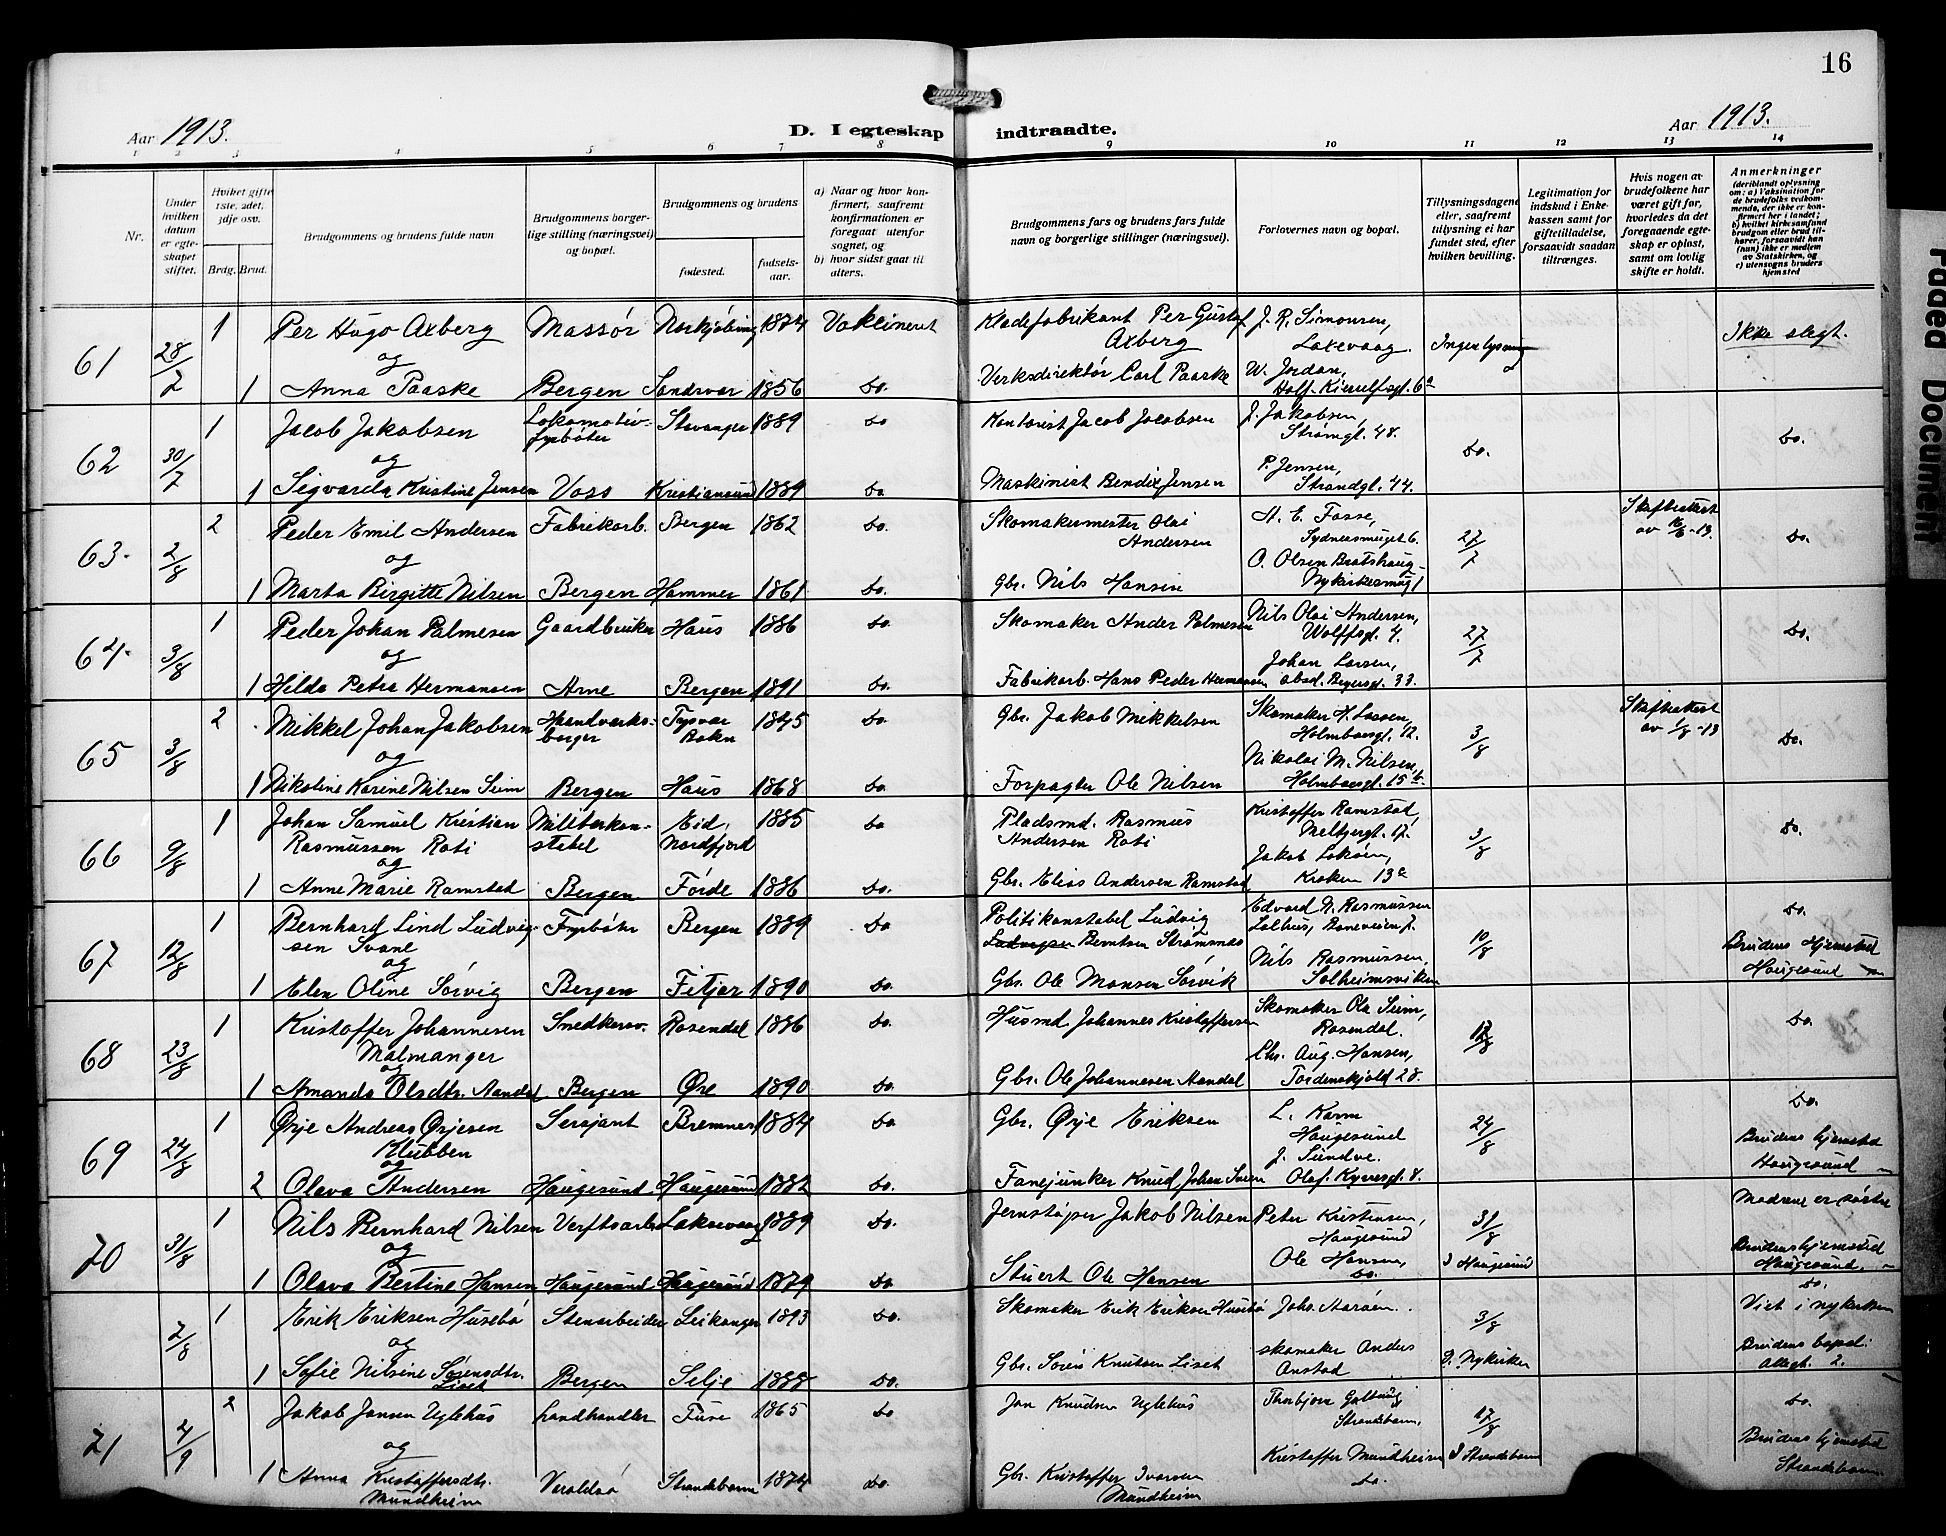 16
Aar 1913.
D. I egteskap indtraadte.
Aar 1913.
1 2 3 4 5 6 7 8 9 10 11 12 13 14
Nr.
Under hvilken datum er egteskapet stiftet.
Hvilket gifte 1ste, 2det, 3dje osv.
Brdg. Brud.
Brudgommens og brudens fulde navn
Brudgommens borgerlige stilling (næringsvei) og bopæl.
Brudgommens og brudens
fødested.
fødselsaar.
a) Naar og hvor konfirmert, saafremt konfirmationen er foregaat utenfor sognet, og
b) hvor sidst gaat til alters.
Brudgommens fars og brudens fars fulde navn og borgerlige stillinger (næringsvei).
Forlovernes navn og bopæl.
Tillysningsdagene eller, saafremt tillysning ei har fundet sted, efter hvilken bevilling.
Legitimation for indskud i Enkekassen samt for giftetilladelse, forsaavidt saadan tiltrænges.
Hvis nogen av brudefolkene har været gift før, hvorledes da det foregaaende egteskap er opløst, samt om lovlig skifte er holdt.
Anmerkninger (deriblandt oplysning om: a) Vaksination for de brudefolks vedkommende, der ikke er konfirmert her i landet; b) hvilket kirkesamfund brudgom eller brud tilhører, forsaavidt han (hun) ikke er medlem av Statskirken, og c) utensogns bruders hjemsted
61 28/7 1 Per Hugo Axberg Massør Norkjøbing 1874 Vakcineret Klædefabrikant Per Gustaf Axberg J. R. Simonsen, Laxevaag. Ingen lysning Ikke slegt.
og
1 Anna Paaske Bergen Sandsvær 1856 do. Verksdirektør Carl Paaske W. Jordan,
62 30/7 1 Jacob Jakobsen Lokomotivfyrbøter Stavanger 1889 do Kontorist Jacob Jacobsen J. Jakobsen, Strømgt. 48. do. do.
og
1 Sigvarda Kristine Jensen Voss Kristiansund 1889 do. Maskinist Bendix Jensen P. Jensen, Strandgt. 44.
63. 2/8 2 Peder Emil Andersen Fabrikarb. Bergen 1862 do. Skomakermester Olai Andersen A. E. Fosse, Sydnessmuget 6. 27/7 do.
og
1 Marta Birgitte Nilsen Bergen Hammer 1861 do. Gbr. Nils Hansen O. Olsen Bratshaug Nykirkesmug 1
64. 3/8 1 Peder Johan Palmesen Gaardbruker Haus 1886 do. Skomaker Ander Palmesen Nils Olai Andersen, Wolffsgt. 4. 27/7 do.
og
1 Hilda Petra Hermansen Arne Bergen 1891 do. Fabrikarb. Hans Peder Hermansen Johan Larsen, Absal. Beyersgt. 33.
65 3/8 2 Mikkel Johan Jakobsen Haandverksborger Tysvær Bokn 1845 do. Gbr. Jakob Mikkelsen Skomaker H. Lassen, Holmboesgt. 12. 3/8 do.
og
1 Nikoline Karine Nilsen Seim Bergen Haus 1868 do. Forpagter Ole Nilsen Nikolai M. Nilsen, Holmboesgt. 15 b.
66 9/8 1 Johan Samuel Kristian Rasmussen Roti Militærkonstabel Eid, Nordfjord 1885 do Pladsmd. Rasmus Andersen Roti Kristoffer Ramstad, 3/8 do.
og
1 Anne Marie Ramstad Bergen Førde 1886 do. Gbr. Elias Andersen Ramstad Jakob Løkøen, Kroken 13a
67 12/8 1 Bernhard Lind Ludvigsen Svane Fyrbøter Bergen 1889 do Politikonstabel Ludvig Berntsen Strømsnes Edvard N. Rasmussen 10/8 do.
og
1 Elen Oline Sørvig Bergen Fitjar 1890 do. Gbr. Ole Monsen Sørvik Nils Rasmussen, Solheimsviken Brudens Hjemsted Haugesund
68 23/8 1 Kristoffer Johannesen Malmanger Snedkersv. Rosendal 1886 do. Husmd Johannes Kristoffersen Skomaker Ola Seim, Rosendal. do.
og
1 Amanda Olsdtr. Aandal Bergen Øre 1890 do. Gbr. Ole Johannesen Aandal Chr. Aug. Hansen, Tordenskjold 28.
69 24/8 1 Ørje Andreas Ørjesen Klubben Sersjant Bremnes 1884 do. Gbr. Ørje Eriksen L. Karm Haugesund 24/8 do.
og
2 Olava Andersen Haugesund Haugesund 1882 do. Fanejunker Knud Johan Iversen J. Sundve. Olaf Kyrresgt. 8. Brudens hjemsted Haugesund
70 31/8 1 Nils Bernhard Nilsen Verftsarb. Laksevaag 1889 do. Jernstøper Jakob Nilsen Peter Kristensen, Haugesund 31/8 Mødrene er søstre
og
1 Olava Bertine Hansen Haugesund Haugesund 1879 do. Stuert Ole Hansen Ole Hansen, do. I Haugesund Brudens hjemsted Haugesund.
7/8 1 Erik Eriksen Husebø Stenarbeider Leikanger 1893 do. Skomaker Erik Eriksen Husebø 3/8 do. Viet i nykirken
og
1 Sofie Nilsine Sørensdtr. Liset Bergen Selje 1888 do. Gbr. Søren Knutsen Liset skomaker Anders Anstad I. Nykirken Brudens bopæl: Allegt. 2.
71 4/9 2 Jakob Jansen Uglehus Landhandler Fuse 1865 do Jan Knudsen Uglehus Thorbjørn Galtung Strandebarm, 17/8 do.
og
1 Anna Kristoffersdtr. Mundheim Varaldsø Strandebarm 1874 do. Gbr. Kristoffer Ivarsen Mundheim Kristoffer Mundheim do. I Strandebarm Brudens hjemsted Strandebarm
Faded Document